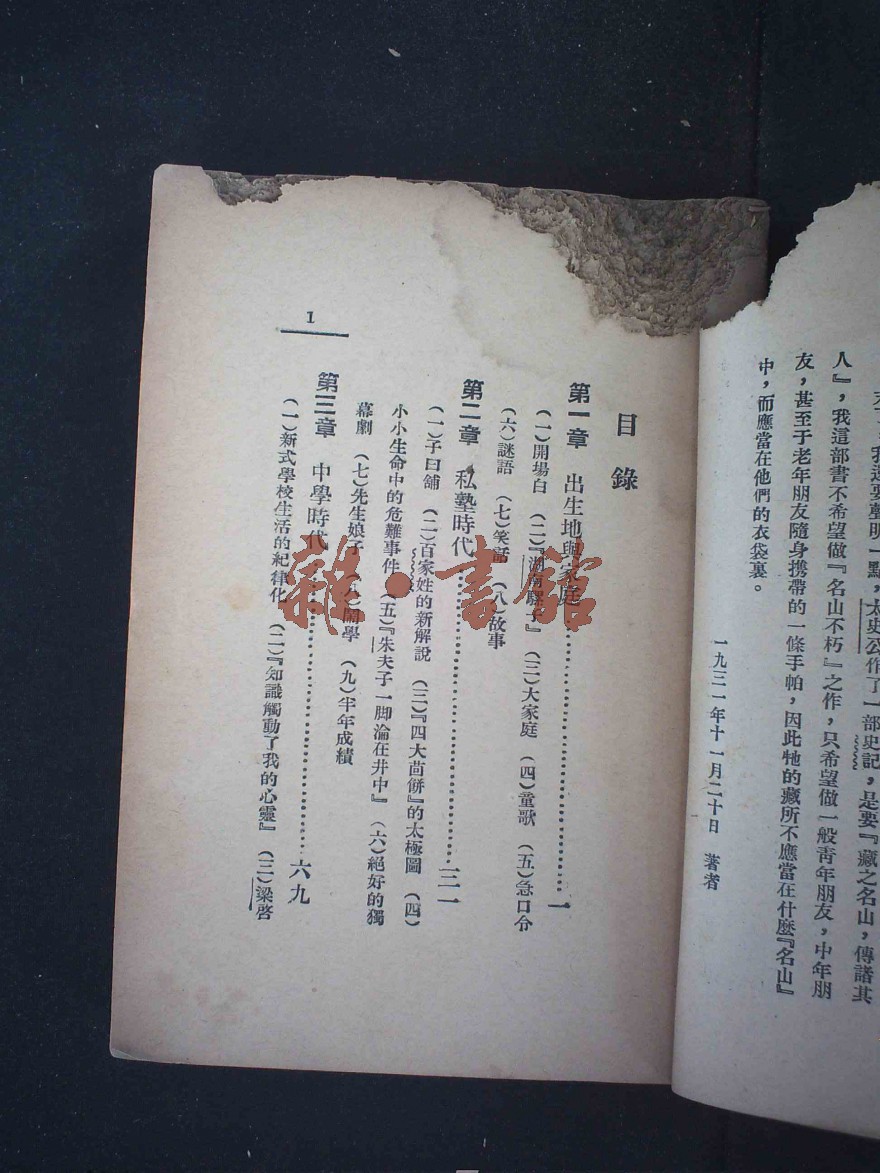 我還要聲明一點，太史公作了一部史記，是要『藏之名山，傳諸其
人』，我這部書不希望做『名山不朽』之作，只希望做一般靑年朋友，中年朋
友，甚至于老年朋友隨身携帶的一條手帕，因此牠的藏所不應當在什麼『名山』
中，而應當在他們的衣袋裏。
一九三一年十一月二十日 著者
目錄
第一章 出生地與家庭……………一
（一）開場白 （二）『湖南騾子』 （三）大家庭 （四）童歌 （五）急口令
（六）謎語 （七）笑話 （八）故事
第二章 私塾時代……………三一
（一）子曰舖 （二）百家姓的新解說 （三）『四大茴餅』的太極圖 （四）
小小生命中的危難事件 （五）『朱夫子一脚淪在井中』 （六）絕好的獨
幕劇 （七）先生娘子 （八）鬧學 （九）半年成績
第三章 中學時代……………六九
（一）新式學校生活的紀律化 （二）『知識觸動了我的心靈』 （三）梁啓
1
雜·書館